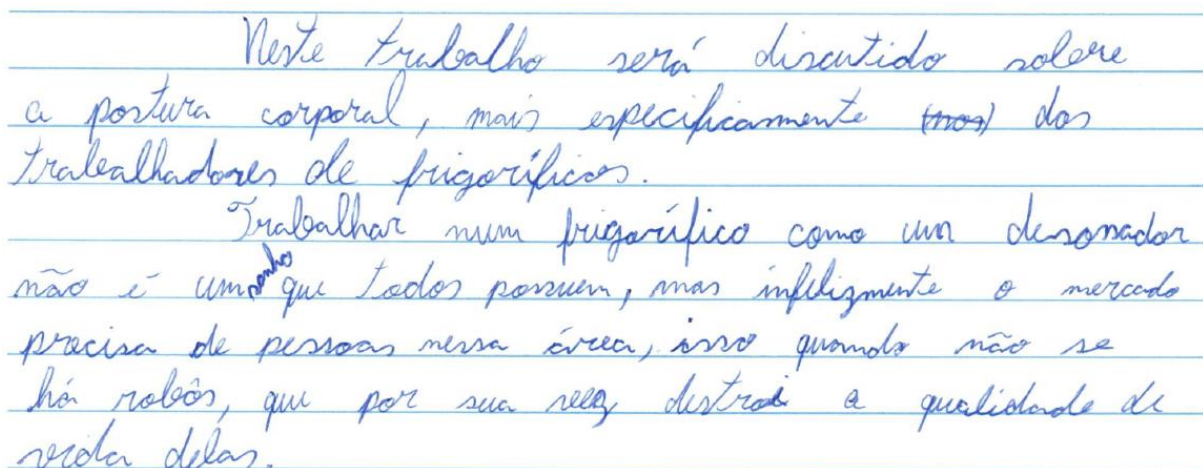 Neste trabalho será discutido sobre
a postura corporal, mais especificamente (nos) dos
trabalhadores de frigoríficos.
Trabalhar num frigorífico como um desossador
não é um sonho que todos possuem, mas infelizmente o mercado
precisa de pessoas nessa área, isso quando não se
há robôs, que por sua vez destroi a qualidade de
vida delas.